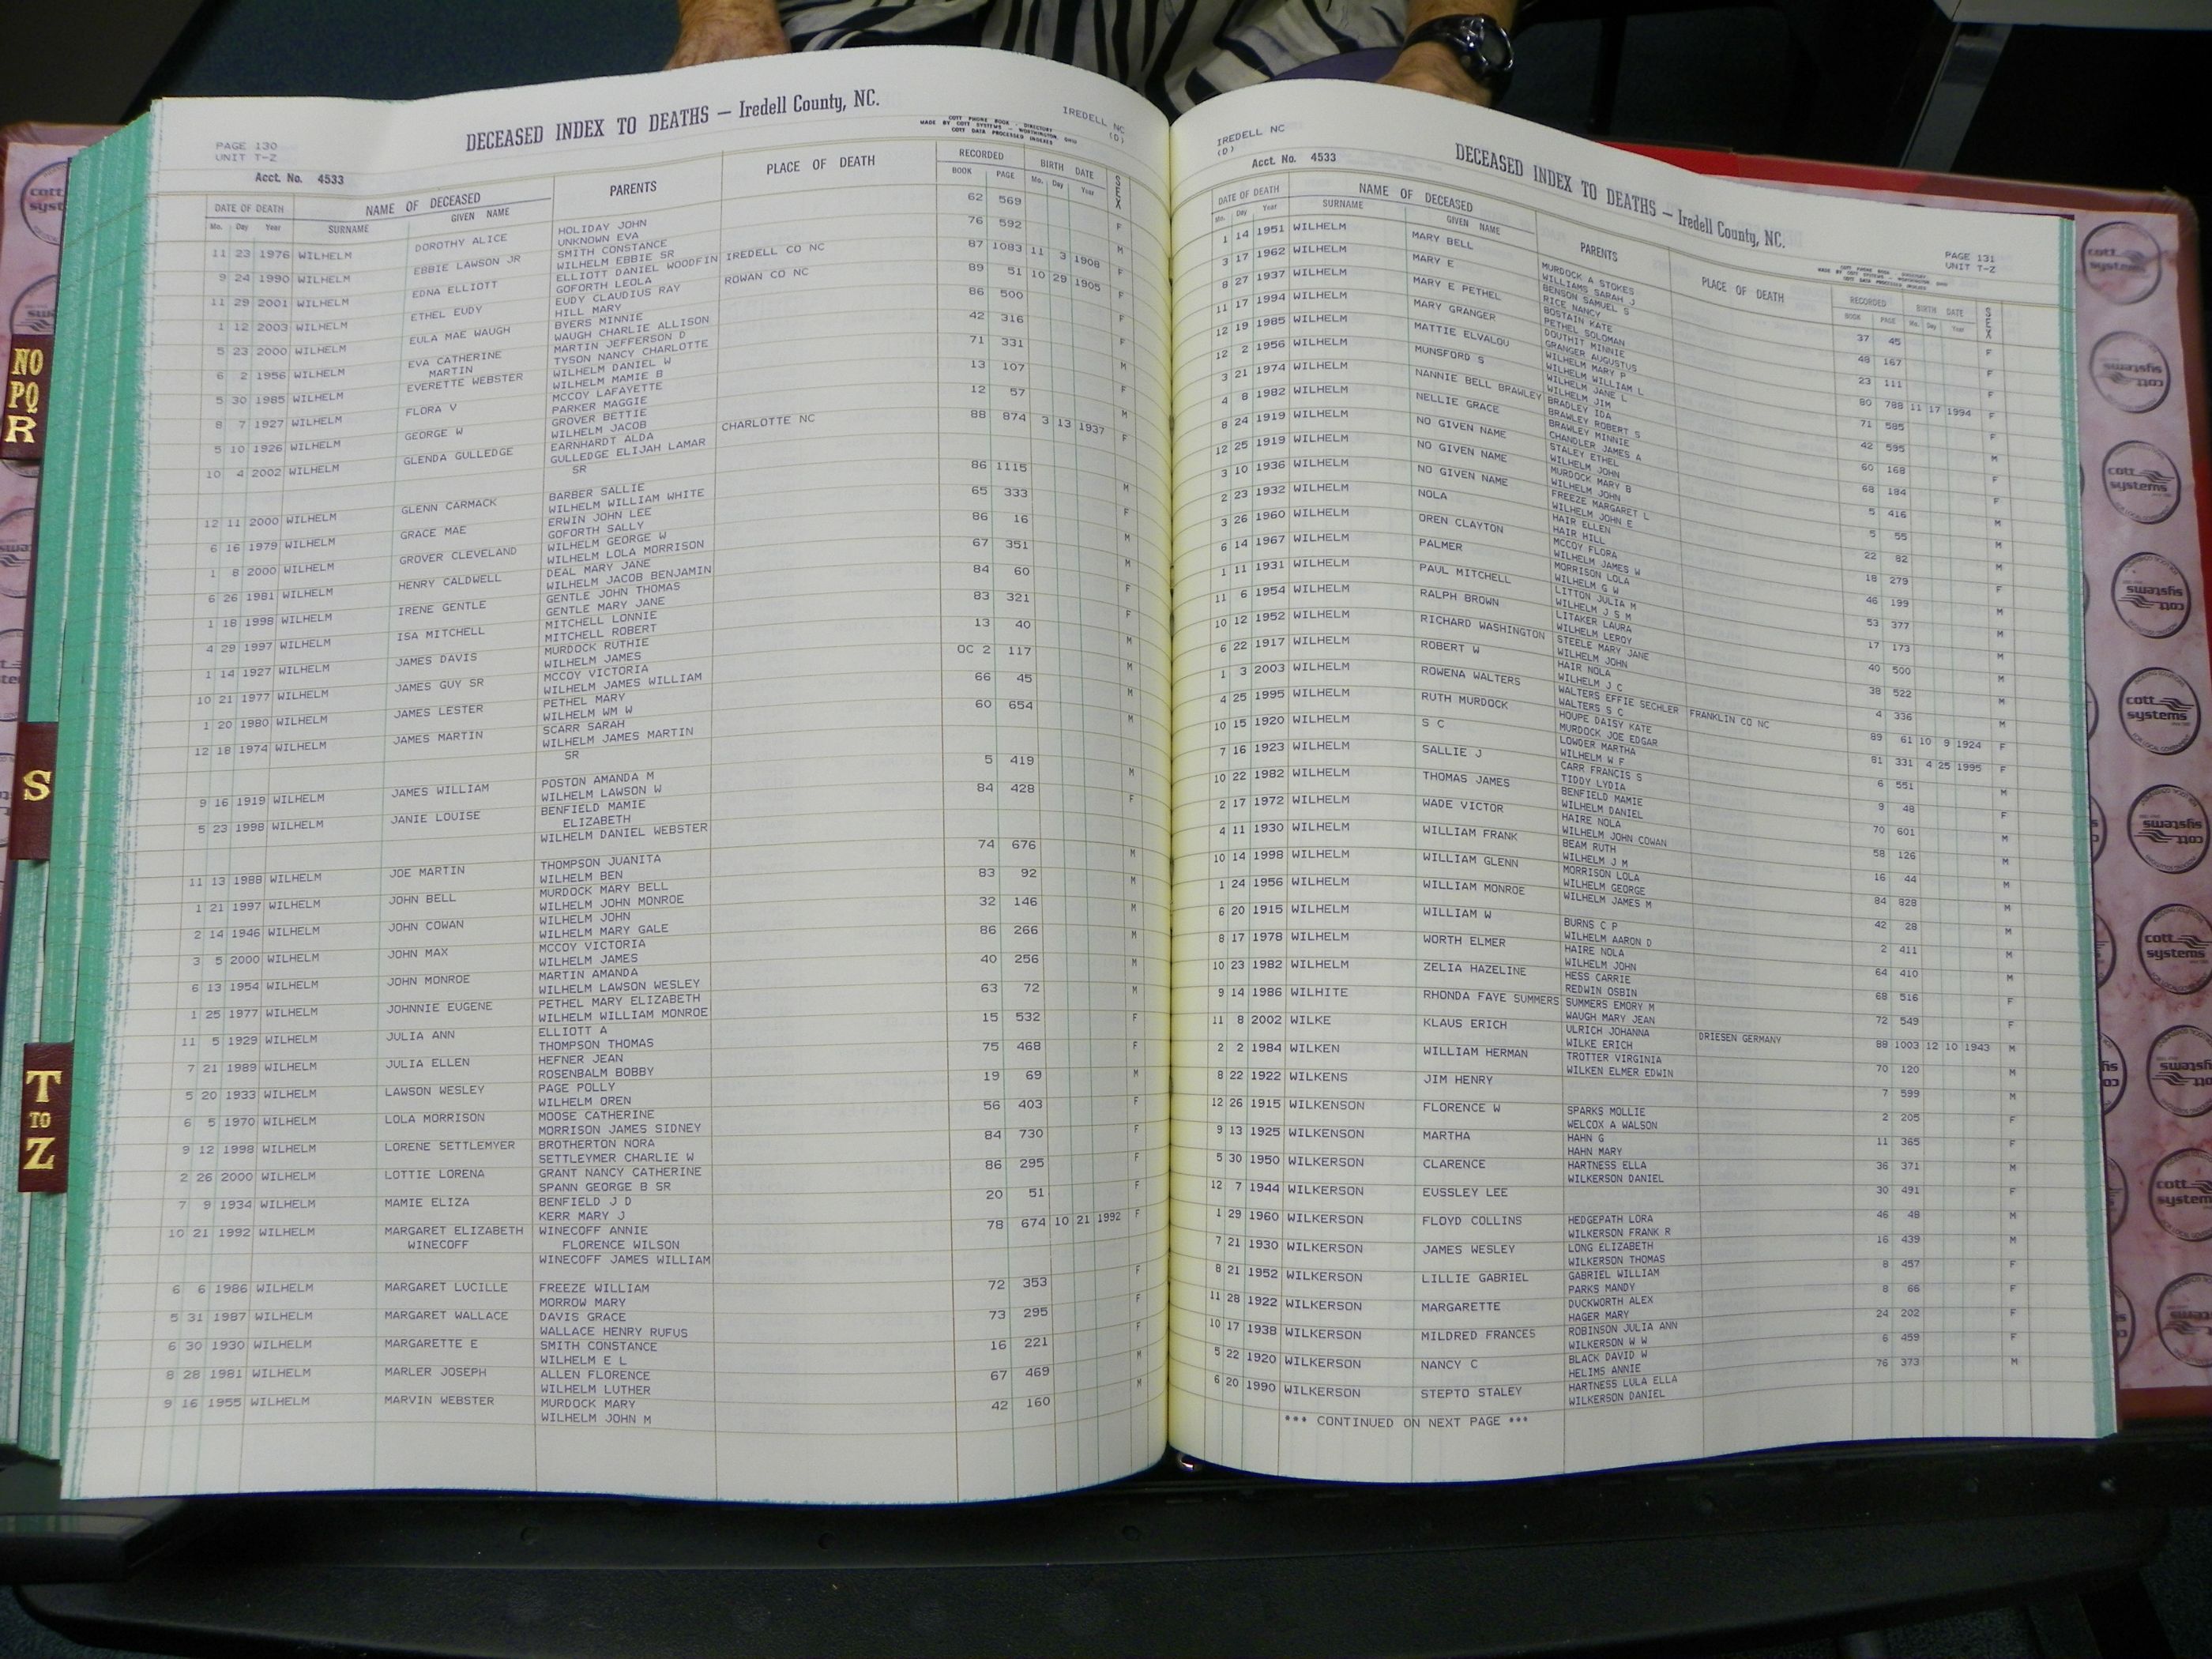 PAGE 130
UNIT T-Z
DECEASED INDEX TO DEATHS — Iredell County, NC.
COTT PHONE BOOK - DIRECTORY
MADE BY COTT SYSTEMS - WORTHINGTON, OHIO
COTT DATA PROCESSED INDEXES
IREDELL NC
(D)
Acct. No. 4533
DATE OF DEATH NAME OF DECEASED PARENTS PLACE OF DEATH RECORDED BIRTH DATE SEX
Mo. Day Year SURNAME GIVEN NAME BOOK PAGE Mo. Day Year
11 23 1976 WILHELM DOROTHY ALICE HOLIDAY JOHN 62 569 F
UNKNOWN EVA
9 24 1990 WILHELM EBBIE LAWSON JR SMITH CONSTANCE 76 592 M
WILHELM EBBIE SR
11 29 2001 WILHELM EDNA ELLIOTT ELLIOTT DANIEL WOODFIN IREDELL CO NC 87 1083 11 3 1908 F
GOFORTH LEOLA
1 12 2003 WILHELM ETHEL EUDY EUDY CLAUDIUS RAY ROWAN CO NC 89 51 10 29 1905 F
HILL MARY
5 23 2000 WILHELM EULA MAE WAUGH BYERS MINNIE 86 500 F
WAUGH CHARLIE ALLISON
6 2 1956 WILHELM EVA CATHERINE MARTIN JEFFERSON D 42 316 F
MARTIN TYSON NANCY CHARLOTTE
5 30 1985 WILHELM EVERETTE WEBSTER WILHELM DANIEL W 71 331 M
WILHELM MAMIE B
8 7 1927 WILHELM FLORA V MCCOY LAFAYETTE 13 107 F
PARKER MAGGIE
5 10 1926 WILHELM GEORGE W GROVER BETTIE 12 57 M
WILHELM JACOB
10 4 2002 WILHELM GLENDA GULLEDGE EARNHARDT ALDA CHARLOTTE NC 88 874 3 13 1937 F
GULLEDGE ELIJAH LAMAR
SR
12 11 2000 WILHELM GLENN CARMACK BARBER SALLIE 86 1115 M
WILHELM WILLIAM WHITE
6 16 1979 WILHELM GRACE MAE ERWIN JOHN LEE 65 333 F
GOFORTH SALLY
1 8 2000 WILHELM GROVER CLEVELAND WILHELM GEORGE W 86 16 M
WILHELM LOLA MORRISON
6 26 1981 WILHELM HENRY CALDWELL DEAL MARY JANE 67 351 M
WILHELM JACOB BENJAMIN
1 18 1998 WILHELM IRENE GENTLE GENTLE JOHN THOMAS 84 60 F
GENTLE MARY JANE
4 29 1997 WILHELM ISA MITCHELL MITCHELL LONNIE 83 321 F
MITCHELL ROBERT
1 14 1927 WILHELM JAMES DAVIS MURDOCK RUTHIE 13 40 M
WILHELM JAMES
10 21 1977 WILHELM JAMES GUY SR MCCOY VICTORIA OC 2 117 M
WILHELM JAMES WILLIAM
1 20 1980 WILHELM JAMES LESTER PETHEL MARY 66 45 M
WILHELM WM W
12 18 1974 WILHELM JAMES MARTIN SCARR SARAH 60 654 M
WILHELM JAMES MARTIN
SR
9 16 1919 WILHELM JAMES WILLIAM POSTON AMANDA M 5 419 M
WILHELM LAWSON W
5 23 1998 WILHELM JANIE LOUISE BENFIELD MAMIE 84 428 F
ELIZABETH
WILHELM DANIEL WEBSTER
11 13 1988 WILHELM JOE MARTIN THOMPSON JUANITA 74 676 M
WILHELM BEN
1 21 1997 WILHELM JOHN BELL MURDOCK MARY BELL 83 92 M
WILHELM JOHN MONROE
2 14 1946 WILHELM JOHN COWAN WILHELM JOHN 32 146 M
WILHELM MARY GALE
3 5 2000 WILHELM JOHN MAX MCCOY VICTORIA 86 266 M
WILHELM JAMES
6 13 1954 WILHELM JOHN MONROE MARTIN AMANDA 40 256 M
WILHELM LAWSON WESLEY
1 25 1977 WILHELM JOHNNIE EUGENE PETHEL MARY ELIZABETH 63 72 M
WILHELM WILLIAM MONROE
11 5 1929 WILHELM JULIA ANN ELLIOTT A 15 532 F
THOMPSON THOMAS
7 21 1989 WILHELM JULIA ELLEN HEFNER JEAN 75 468 F
ROSENBALM BOBBY
5 20 1933 WILHELM LAWSON WESLEY PAGE POLLY 19 69 M
WILHELM OREN
6 5 1970 WILHELM LOLA MORRISON MOOSE CATHERINE 56 403 F
MORRISON JAMES SIDNEY
9 12 1998 WILHELM LORENE SETTLEMYER BROTHERTON NORA 84 730 F
SETTLEYMER CHARLIE W
2 26 2000 WILHELM LOTTIE LORENA GRANT NANCY CATHERINE 86 295 F
SPANN GEORGE B SR
7 9 1934 WILHELM MAMIE ELIZA BENFIELD J D 20 51 F
KERR MARY J
10 21 1992 WILHELM MARGARET ELIZABETH WINECOFF ANNIE 78 674 10 21 1992 F
WINECOFF FLORENCE WILSON
WINECOFF JAMES WILLIAM
6 6 1986 WILHELM MARGARET LUCILLE FREEZE WILLIAM 72 353 F
MORROW MARY
5 31 1987 WILHELM MARGARET WALLACE DAVIS GRACE 73 295 F
WALLACE HENRY RUFUS
6 30 1930 WILHELM MARGARETTE E SMITH CONSTANCE 16 221 F
WILHELM E L
8 28 1981 WILHELM MARLER JOSEPH ALLEN FLORENCE 67 469 M
WILHELM LUTHER
9 16 1955 WILHELM MARVIN WEBSTER MURDOCK MARY 42 160 M
WILHELM JOHN M
IREDELL NC
(D)
Acct. No. 4533
DECEASED INDEX TO DEATHS — Iredell County, NC.
PAGE 131
UNIT T-Z
COTT PHONE BOOK - DIRECTORY
MADE BY COTT SYSTEMS - WORTHINGTON, OHIO
COTT DATA PROCESSED INDEXES
DATE OF DEATH NAME OF DECEASED PARENTS PLACE OF DEATH RECORDED BIRTH DATE SEX
Mo. Day Year SURNAME GIVEN NAME BOOK PAGE Mo. Day Year
1 14 1951 WILHELM MARY BELL MURDOCK A STOKES 37 45 F
WILLIAMS SARAH J
3 17 1962 WILHELM MARY E BENSON SAMUEL S 48 167 F
RICE NANCY
8 27 1937 WILHELM MARY E PETHEL BOSTAIN KATE 23 111 F
PETHEL SOLOMAN
11 17 1994 WILHELM MARY GRANGER DOUTHIT MINNIE 80 788 11 17 1994 F
GRANGER AUGUSTUS
12 19 1985 WILHELM MATTIE ELVALOU WILHELM MARY P 71 585 F
WILHELM WILLIAM L
12 2 1956 WILHELM MUNSFORD S WILHELM JANE L 42 595 M
WILHELM JIM
3 21 1974 WILHELM NANNIE BELL BRAWLEY BRADLEY IDA 60 168 F
BRAWLEY ROBERT S
4 8 1982 WILHELM NELLIE GRACE BRAWLEY MINNIE 68 184 F
CHANDLER JAMES A
8 24 1919 WILHELM NO GIVEN NAME STALEY ETHEL 5 416 M
WILHELM JOHN
12 25 1919 WILHELM NO GIVEN NAME MURDOCK MARY B 5 55 M
WILHELM JOHN
3 10 1936 WILHELM NO GIVEN NAME FREEZE MARGARET L 22 82 M
WILHELM JOHN E
2 23 1932 WILHELM NOLA HAIR ELLEN 18 279
HAIR HILL
3 26 1960 WILHELM OREN CLAYTON MCCOY FLORA 46 199 M
WILHELM JAMES W
6 14 1967 WILHELM PALMER MORRISON LOLA 53 377 M
WILHELM G W
1 11 1931 WILHELM PAUL MITCHELL LITTON JULIA M 17 173 M
WILHELM J S M
11 6 1954 WILHELM RALPH BROWN LITAKER LAURA 40 500 M
WILHELM LEROY
10 12 1952 WILHELM RICHARD WASHINGTON STEELE MARY JANE 38 522 M
WILHELM JOHN
6 22 1917 WILHELM ROBERT W HAIR NOLA 4 336 M
WILHELM J C
1 3 2003 WILHELM ROWENA WALTERS WALTERS EFFIE SECHLER FRANKLIN CO NC 89 61 10 9 1924 F
WALTERS S C
4 25 1995 WILHELM RUTH MURDOCK HOUPE DAISY KATE 81 331 4 25 1995 F
MURDOCK JOE EDGAR
10 15 1920 WILHELM S C LOWDER MARTHA 6 551 M
WILHELM W F
7 16 1923 WILHELM SALLIE J CARR FRANCIS S 9 48 F
TIDDY LYDIA
10 22 1982 WILHELM THOMAS JAMES BENFIELD MAMIE 70 601 M
WILHELM DANIEL
2 17 1972 WILHELM WADE VICTOR HAIRE NOLA 58 126 M
WILHELM JOHN COWAN
4 11 1930 WILHELM WILLIAM FRANK BEAM RUTH 16 44 M
WILHELM J M
10 14 1998 WILHELM WILLIAM GLENN MORRISON LOLA 84 828 M
WILHELM GEORGE
1 24 1956 WILHELM WILLIAM MONROE WILHELM JAMES M 42 28 M
6 20 1915 WILHELM WILLIAM W BURNS C P 2 411 M
WILHELM AARON D
8 17 1978 WILHELM WORTH ELMER HAIRE NOLA 64 410 M
WILHELM JOHN
10 23 1982 WILHELM ZELIA HAZELINE HESS CARRIE 68 516 F
REDWIN OSBIN
9 14 1986 WILHITE RHONDA FAYE SUMMERS SUMMERS EMORY M 72 549 F
WAUGH MARY JEAN
11 8 2002 WILKE KLAUS ERICH ULRICH JOHANNA DRIESEN GERMANY 88 1003 12 10 1943 M
WILKE ERICH
2 2 1984 WILKEN WILLIAM HERMAN TROTTER VIRGINIA 70 120 M
WILKEN ELMER EDWIN
8 22 1922 WILKENS JIM HENRY 7 599 M
12 26 1915 WILKENSON FLORENCE W SPARKS MOLLIE 2 205 F
WELCOX A WALSON
9 13 1925 WILKENSON MARTHA HAHN G 11 365 F
HAHN MARY
5 30 1950 WILKERSON CLARENCE HARTNESS ELLA 36 371 M
WILKERSON DANIEL
12 7 1944 WILKERSON EUSSLEY LEE 30 491 F
1 29 1960 WILKERSON FLOYD COLLINS HEDGEPATH LORA 46 48 M
WILKERSON FRANK R
7 21 1930 WILKERSON JAMES WESLEY LONG ELIZABETH 16 439 M
WILKERSON THOMAS
8 21 1952 WILKERSON LILLIE GABRIEL GABRIEL WILLIAM 8 457 F
PARKS MANDY
11 28 1922 WILKERSON MARGARETTE DUCKWORTH ALEX 8 66 F
HAGER MARY
10 17 1938 WILKERSON MILDRED FRANCES ROBINSON JULIA ANN 24 202 F
WILKERSON W W
5 22 1920 WILKERSON NANCY C BLACK DAVID W 6 459 F
HELIMS ANNIE
6 20 1990 WILKERSON STEPTO STALEY HARTNESS LULA ELLA 76 373 M
WILKERSON DANIEL
*** CONTINUED ON NEXT PAGE ***
NO
PQ
R
S
T
TO
Z
cott
systems